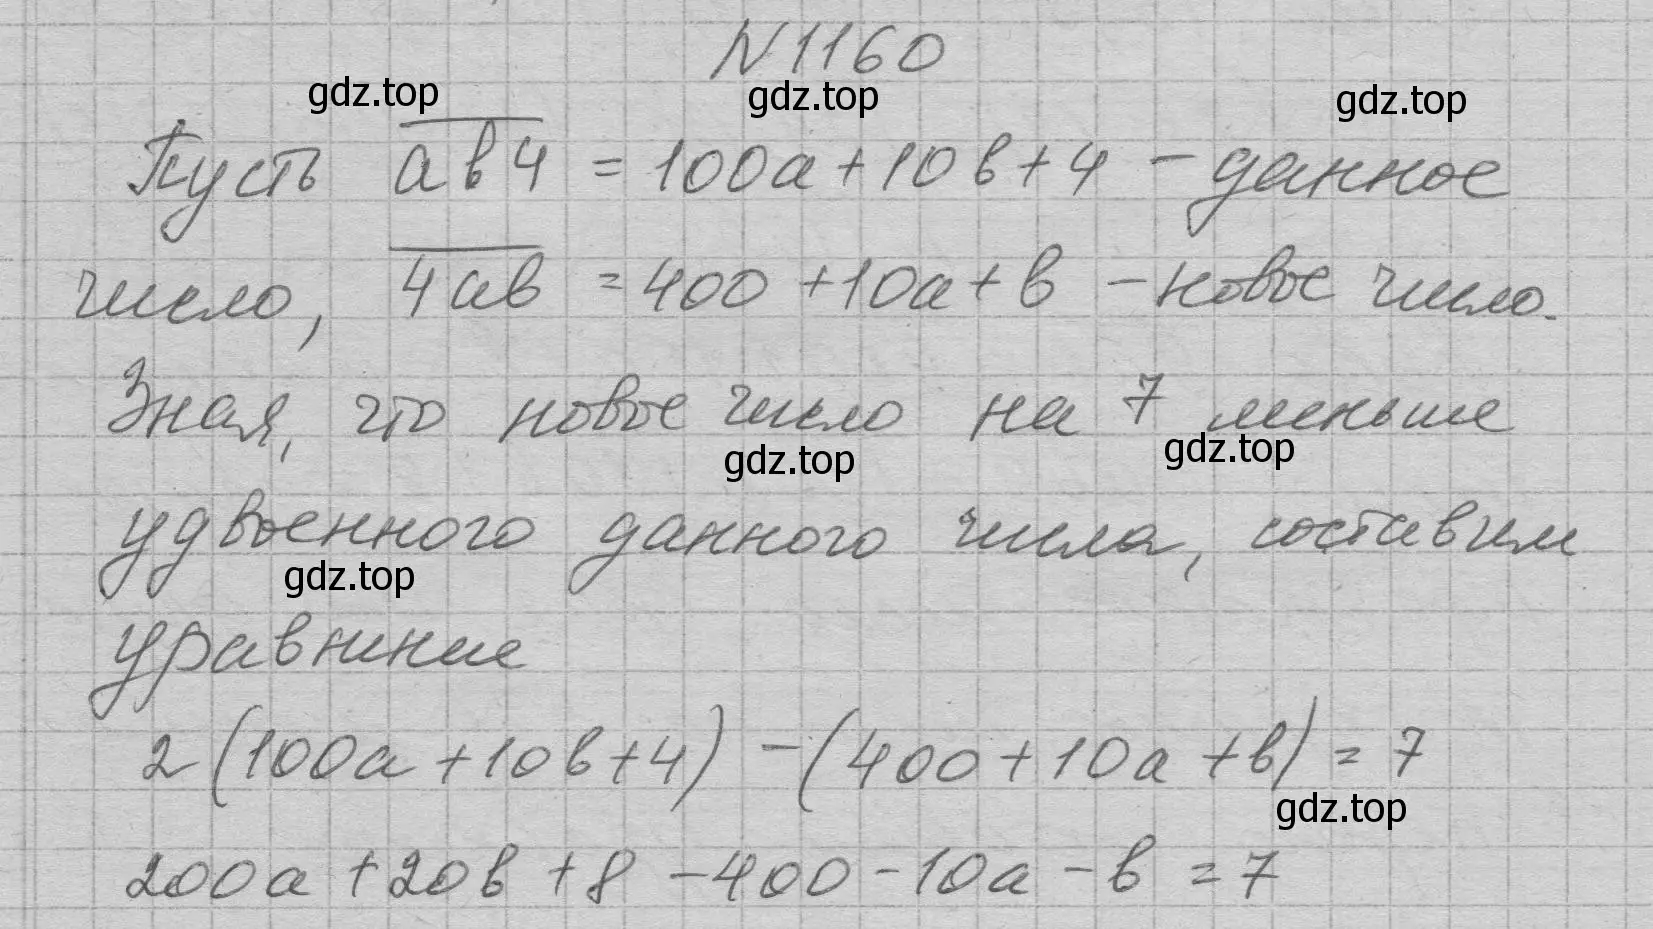 N 1160
gdz.top gdz.top gdz.top
Пусть ав4 = 100а + 10в + 4 – данное
число, 4ав = 400 + 10а + в – новое число.
Зная, что новое число на 7 меньше
gdz.top gdz.top
удвоенного данного числа, составим
gdz.top
уравнение
2(100а + 10в + 4) – (400 + 10а + в) = 7
gdz.top
200а + 20в + 8 – 400 – 10а – в = 7